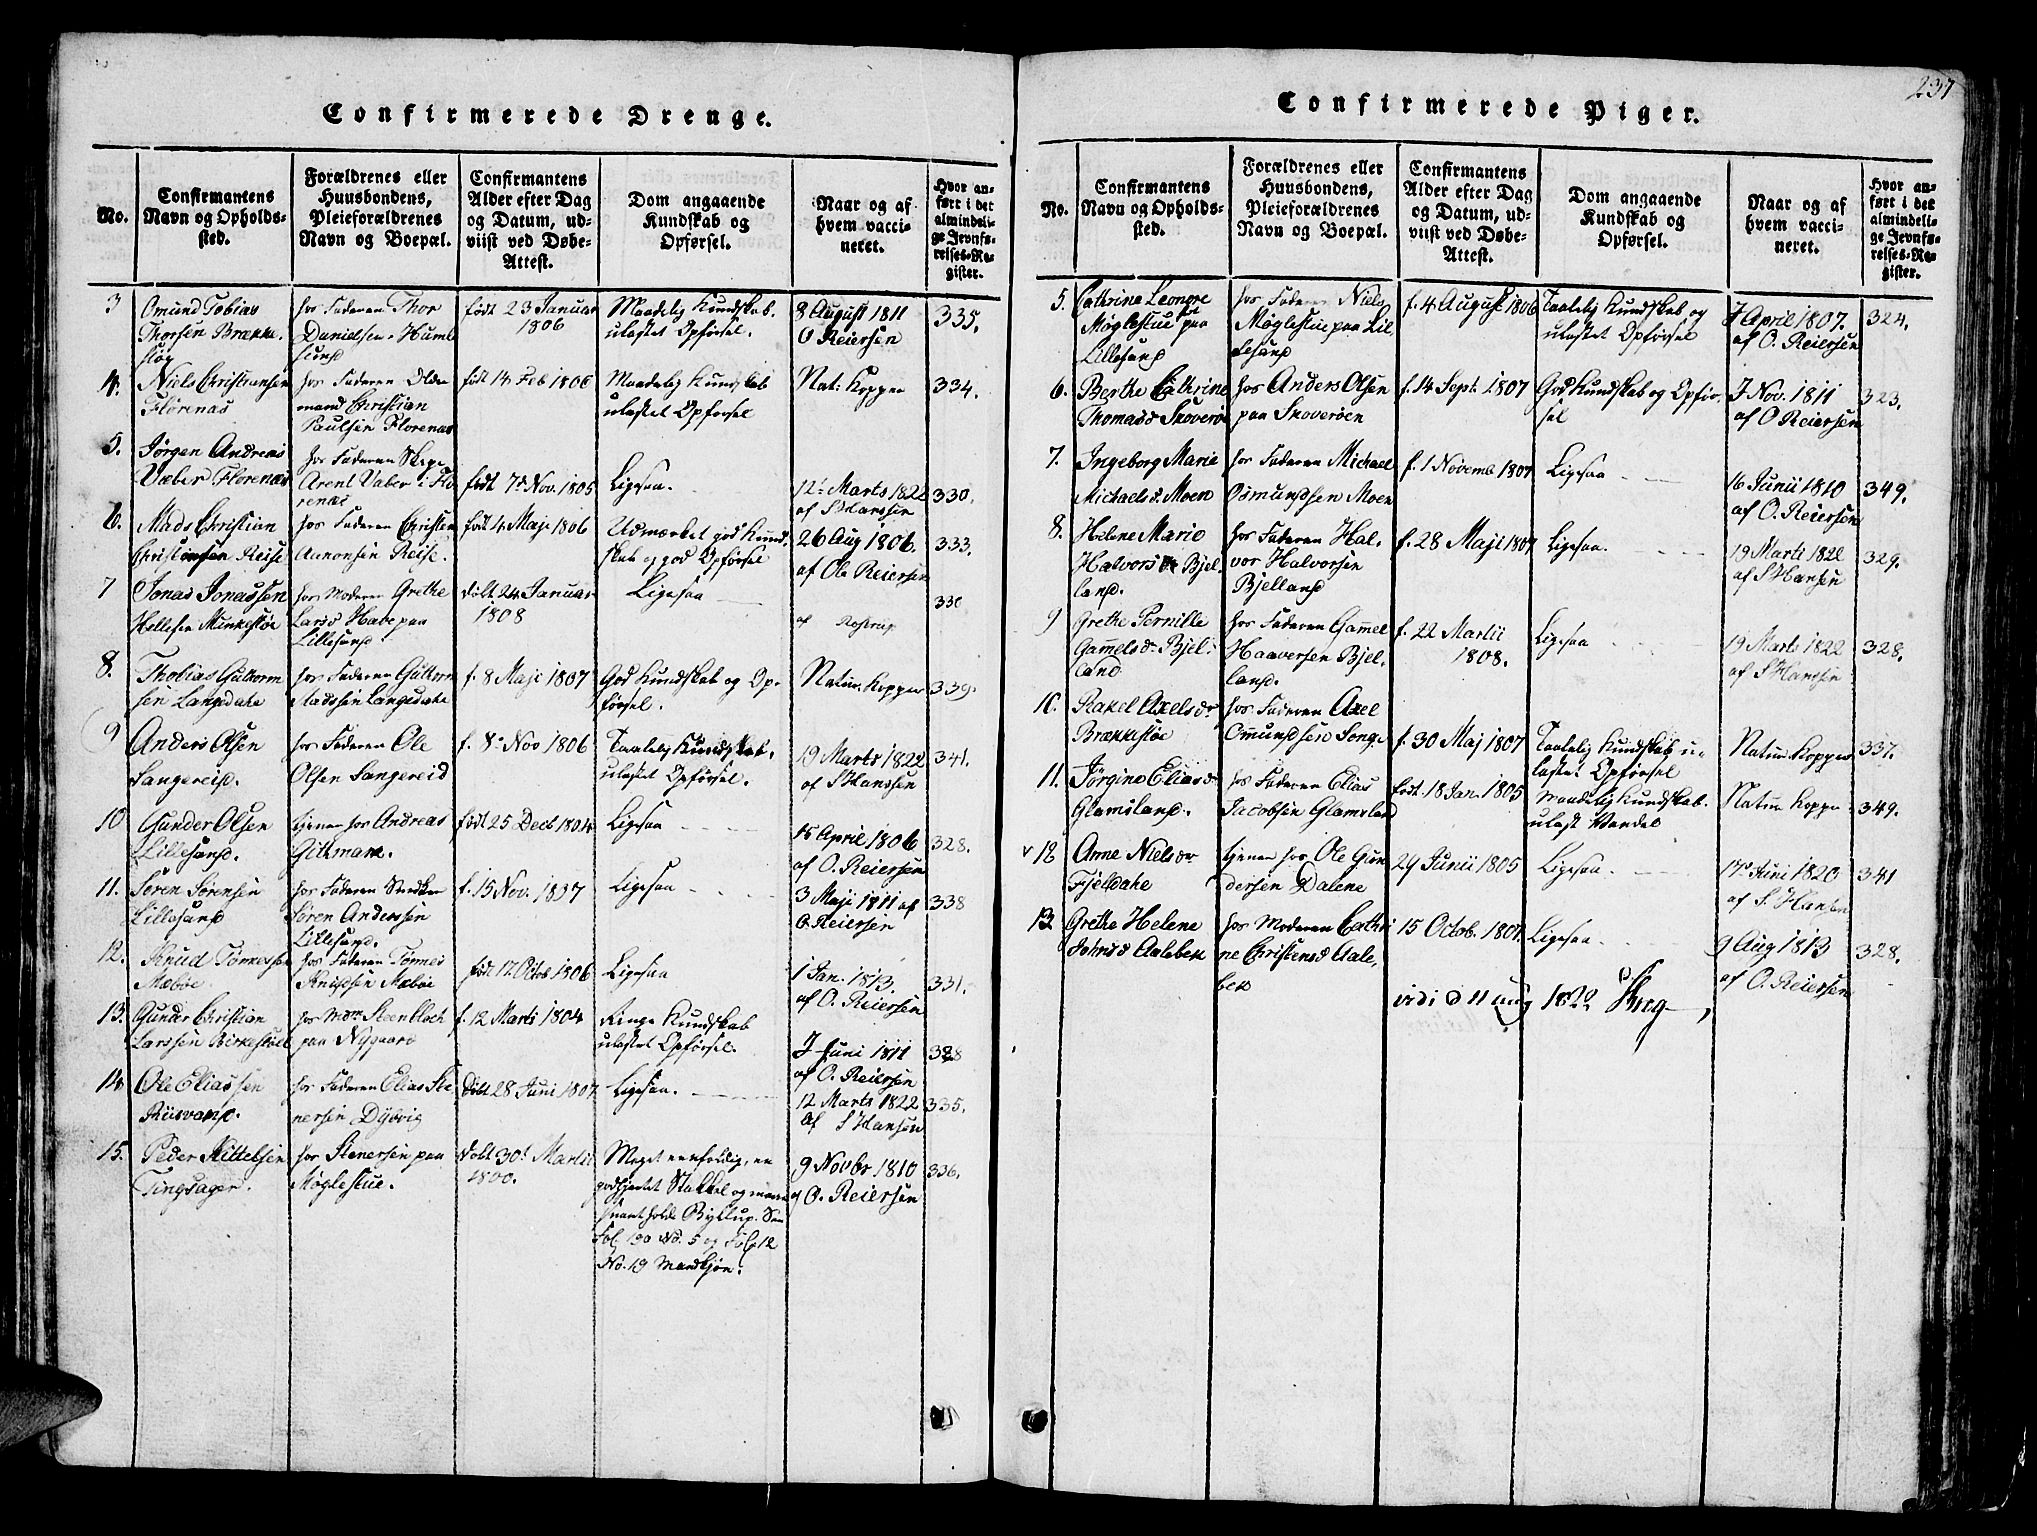 237
Confirmerede Drenge.
No.
Confirmantens
Navn og Opholds-
sted.
Forældrenes eller
Huusbondens,
Pleieforældrenes
Navn og Boepæl.
Confirmantens
Alder efter Dag
og Datum, ud-
viist ved Døbe-
Attest.
Dom angaaende
Kundskab og
Opførsel.
Naar og af
hvem vacci-
neret.
Hvor an-
ført i det
almindeli-
ge Jevnfø-
relses-Re-
gister.
3 Omund Tobias
Thorsen Brække-
støe
hos Faderen Thor
Danielsen Humle
sund
født 23 Januar
1806
Maadelig Kundskab.
ulastet Opførsel.
8 August 1811
O Reiersen
335.
4. Niels Christiansen
Florenæs
hos Faderen Olde
mand Christian
Paulsen Florenæs
født 14 Feb 1806
Maadelig Kundskab
ulastet Opførsel
Nat. Kopper
334.
5. Jørgen Andreas
Væber Florenæs
hos Faderen Skip
Arent Væber i Flo
renæs
født 7d Nov. 1805
Ligesaa.
12t Marts 1822
af S Hanssen
330.
6. Mads Christian
Christensen Reise
hos Faderen Christen
Aanonsen Reise.
født 4 Maji 1806
Udmærket god Kund
skab og god Opførsel
26 Aug 1806.
af Ole Reiersen
333.
7 Jonas Jonassen
Hellesen Minkestøe
hos Moderen Grethe
Larsd Habe paa
Lillesand.
døbt 24 Januar
1808
Ligesaa
af Rostrup
330
8. Thobias Guthorm
sen Langedahe
hos Faderen Guthorm
Madssen Langedahe
f. 8 Maji 1807
God Kundskab og Op-
førsel.
Natur. Kopper
339.
9 Anders Olsen
Sangereid.
hos Faderen Ole
Olsen Sangereid
f. 8 Nov 1806
Taalelig Kundskab.
ulastet Opførsel.
19 Marts 1822
af S Hanssen
341.
10 Gunder Olsen
Lillesand.
tjener hos Andreas
Githmark.
født 25 Decb 1804
Ligesaa
15 April 1806
af O. Reiersen
328.
11. Søren Sørensen
Lillesand
hos Faderen Snedker
Søren Anderssen
Lillesand.
f. 15 Nov. 1807
Ligesaa
3 Maji 1811 af
O Reiersen
338
12. Knud Tønnessen
Mæbøe.
hos Faderen Tønnes
Knudsen Mæbøe
født 17 Octob 1806
Ligesaa
1 Jan. 1813.
af O. Reiersen
331.
13. Gunder Christian
Larssen Birkestøel
hos Mons Steenbloch
paa Nygaard
f. 12 Marti 1804
Ringe Kundskab
ulastet Opførsel.
7 Juni 1811
af O. Reiersen
328
14. Ole Eliassen
Riisvand.
hos Faderen Elias Ste
nersen Dybvig
Døbt 28 Juni 1807
Ligesaa.
12 Marts 1822
af S Hansen
335.
15. Peder Kittelsen
Tingsager.
hos Stenersen paa
Møglestue.
døbt 30t Martii
1800.
Meget eenfoldig, en
godhjertet Stakkel og
Fol. 130 No. 5 og Fol 12
No. 19 Mandkjøn.
9 Novbr 1810
af O. Reiersen
336.
Confirmerede Piger.
No.
Confirmantens
Navn og Opholds-
sted.
Forældrenes eller
Huusbondens,
Pleieforældrenes
Navn og Boepæl.
Confirmantens
Alder efter Dag
og Datum, ud-
viist ved Døbe-
Attest.
Dom angaaende
Kundskab og
Opførsel.
Naar og af
hvem vacci-
neret.
Hvor an-
ført i det
almindeli-
ge Jevnfø-
relses-Re-
gister.
5. Cathrine Leonore
Møglestue paa
Lillesand
hos Faderen Niels
Møglestue paa Lil-
lesand
f. 4 August 1806
Taalelig Kundskab og
ulastet Opførsel
7 April 1807.
af O. Reiersen
324.
6. Berthe Cathrine
Thomasd Skoverøe
hos Anders Olsen
paa Skoverøen
f. 14 Sept. 1807
God Kundskab og Opfør-
sel
7 Nov. 1811
af O Reiersen
323.
7. Ingeborg Marie
Michaelsd. Moen
hos Faderen Michael
Osmundssen Moen
f. 1 Novemb 1807
Ligesaa.
16 Junii 1810
af O. Reiersen
349.
8. Helene Marie
Halvorsdr Bjel-
land.
hos Faderen Hal-
vor Halvorsen
Bjelland
f. 28 Maji 1807
Ligesaa.
19 Marti 1822
af S Hansen
329.
9 Grethe Pernille
Gamelsdr Bjel-
land
hos Faderen Gamel
Haaversen Bjel-
land.
f. 22 Martii
1808.
Ligesaa
19 Marts 1822
af S Hanssen
328.
10. Rakel Axelsdr
Brækkestøe
hos Faderen Axel
Omundssen Songe
f. 30 Maj 1807
Taalelig Kundskab u-
lastet Opførsel
Natur Kopper
337.
11. Jørgine Eliasdr
Glamsland.
hos Faderen Elias
Jacobsen Glamsland
født 18 Jan. 1805
Maadelig Kundskab.
ulast Vandel
Natur Kopper
349.
v 12 Anne Nielsdr
Fjeldahe
tjener hos Ole Gun
dersen Dalene
29 Junii 1805
Ligesaa.
17d Juni 1820
af S. Hansen
341
13. Grethe Helene
Johnsd Aalebek
hos Moderen Cathri
ne Christensd Aale-
bek
15 Octob. 1807.
Ligesaa.
9 Aug 1813
af O. Reiersen
328.
vidi d 11 aug 1822